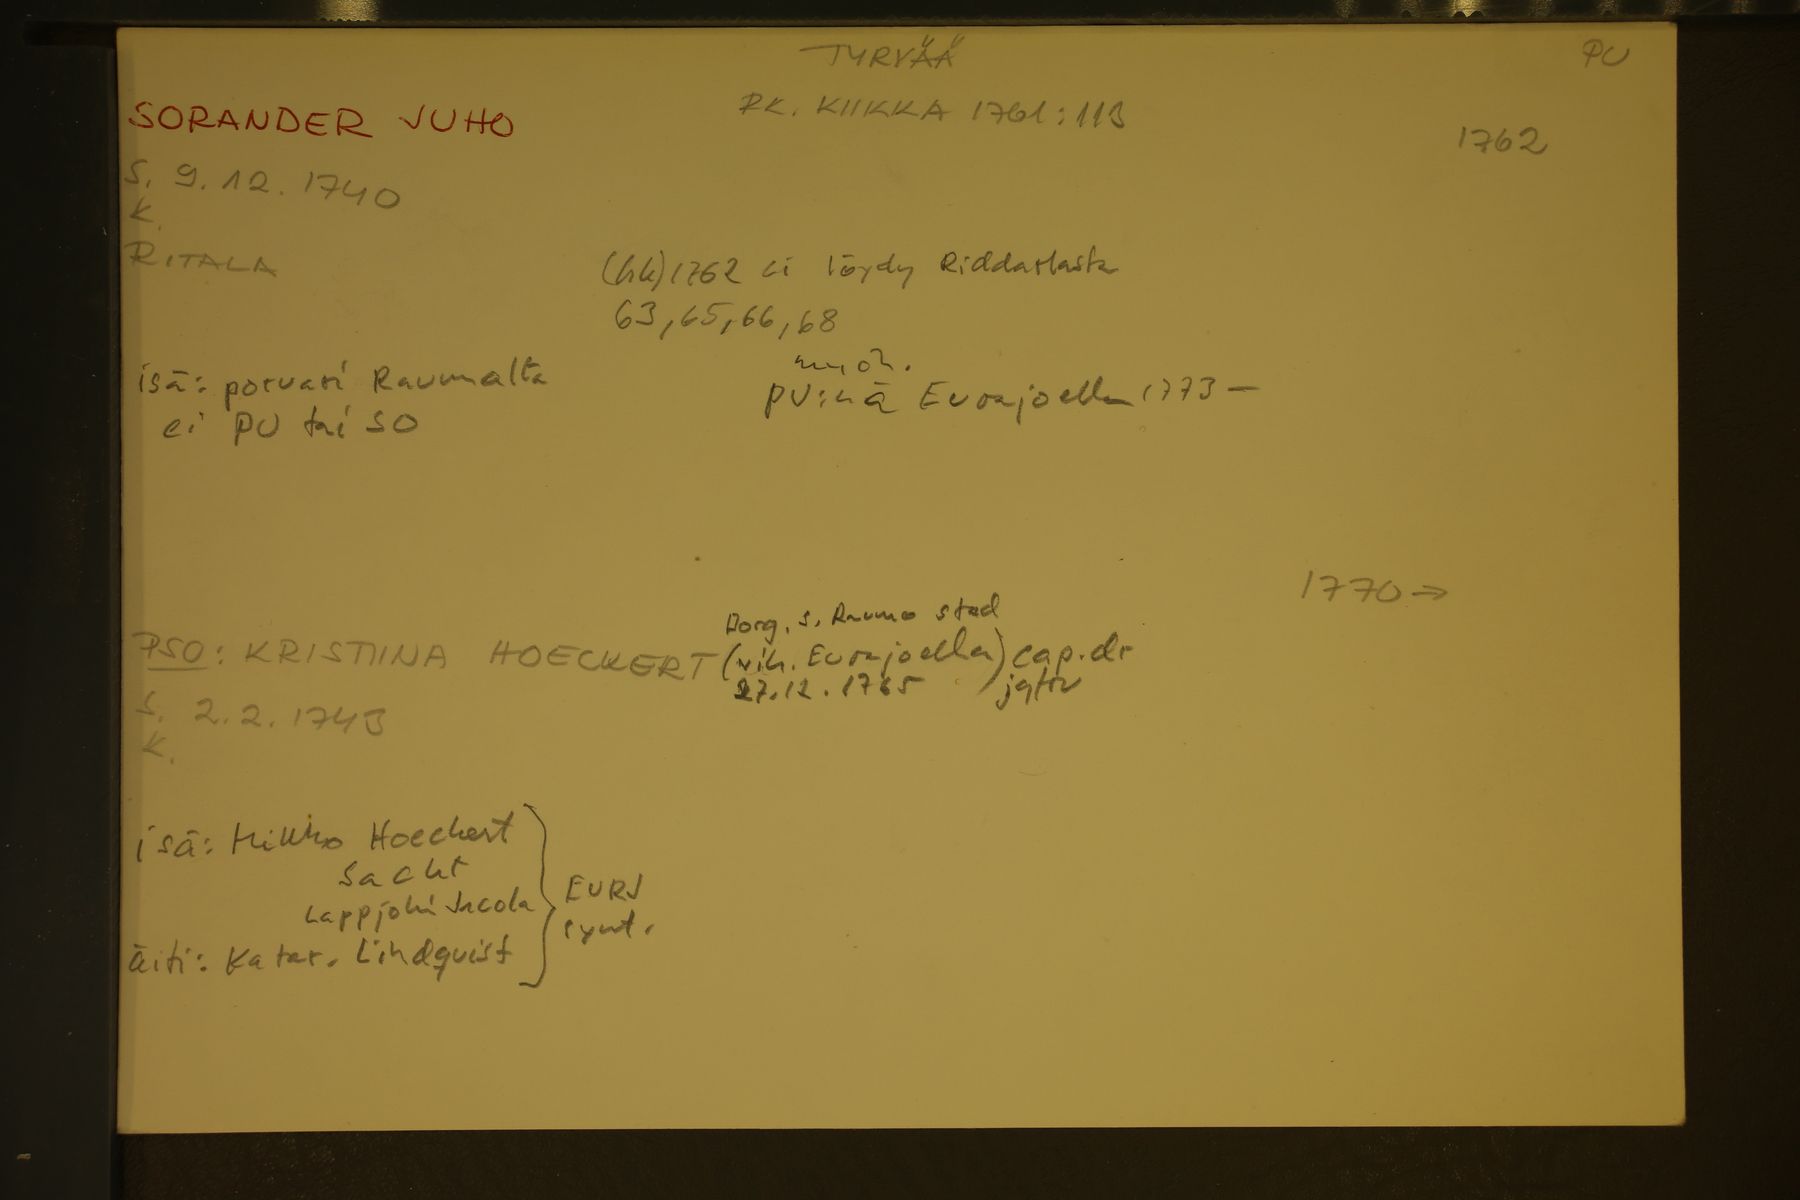 TYRVÄÄ
PU
SORANDER JUHO
RK. KIIKKA 1761:113
1762
S. 9.12.1740
K.
RITALA
(hk) 1762 ei löydy Riddarlasta
63, 65, 66, 68
myöh.
PU:nä Eurajoella 1773 –
isä: porvari Raumalta
ei PU tai SO
1770 →
Borg. s. Raumo stad
PSO: KRISTIINA HOECKERT (vih. Eurajoella) cap. dr
27.12.1765
S. 2.2.1743
K.
isä: Mikko Hoeckert
Lappjoki Jacola
EURJ
synt.
äiti: Katar. Lindqvist